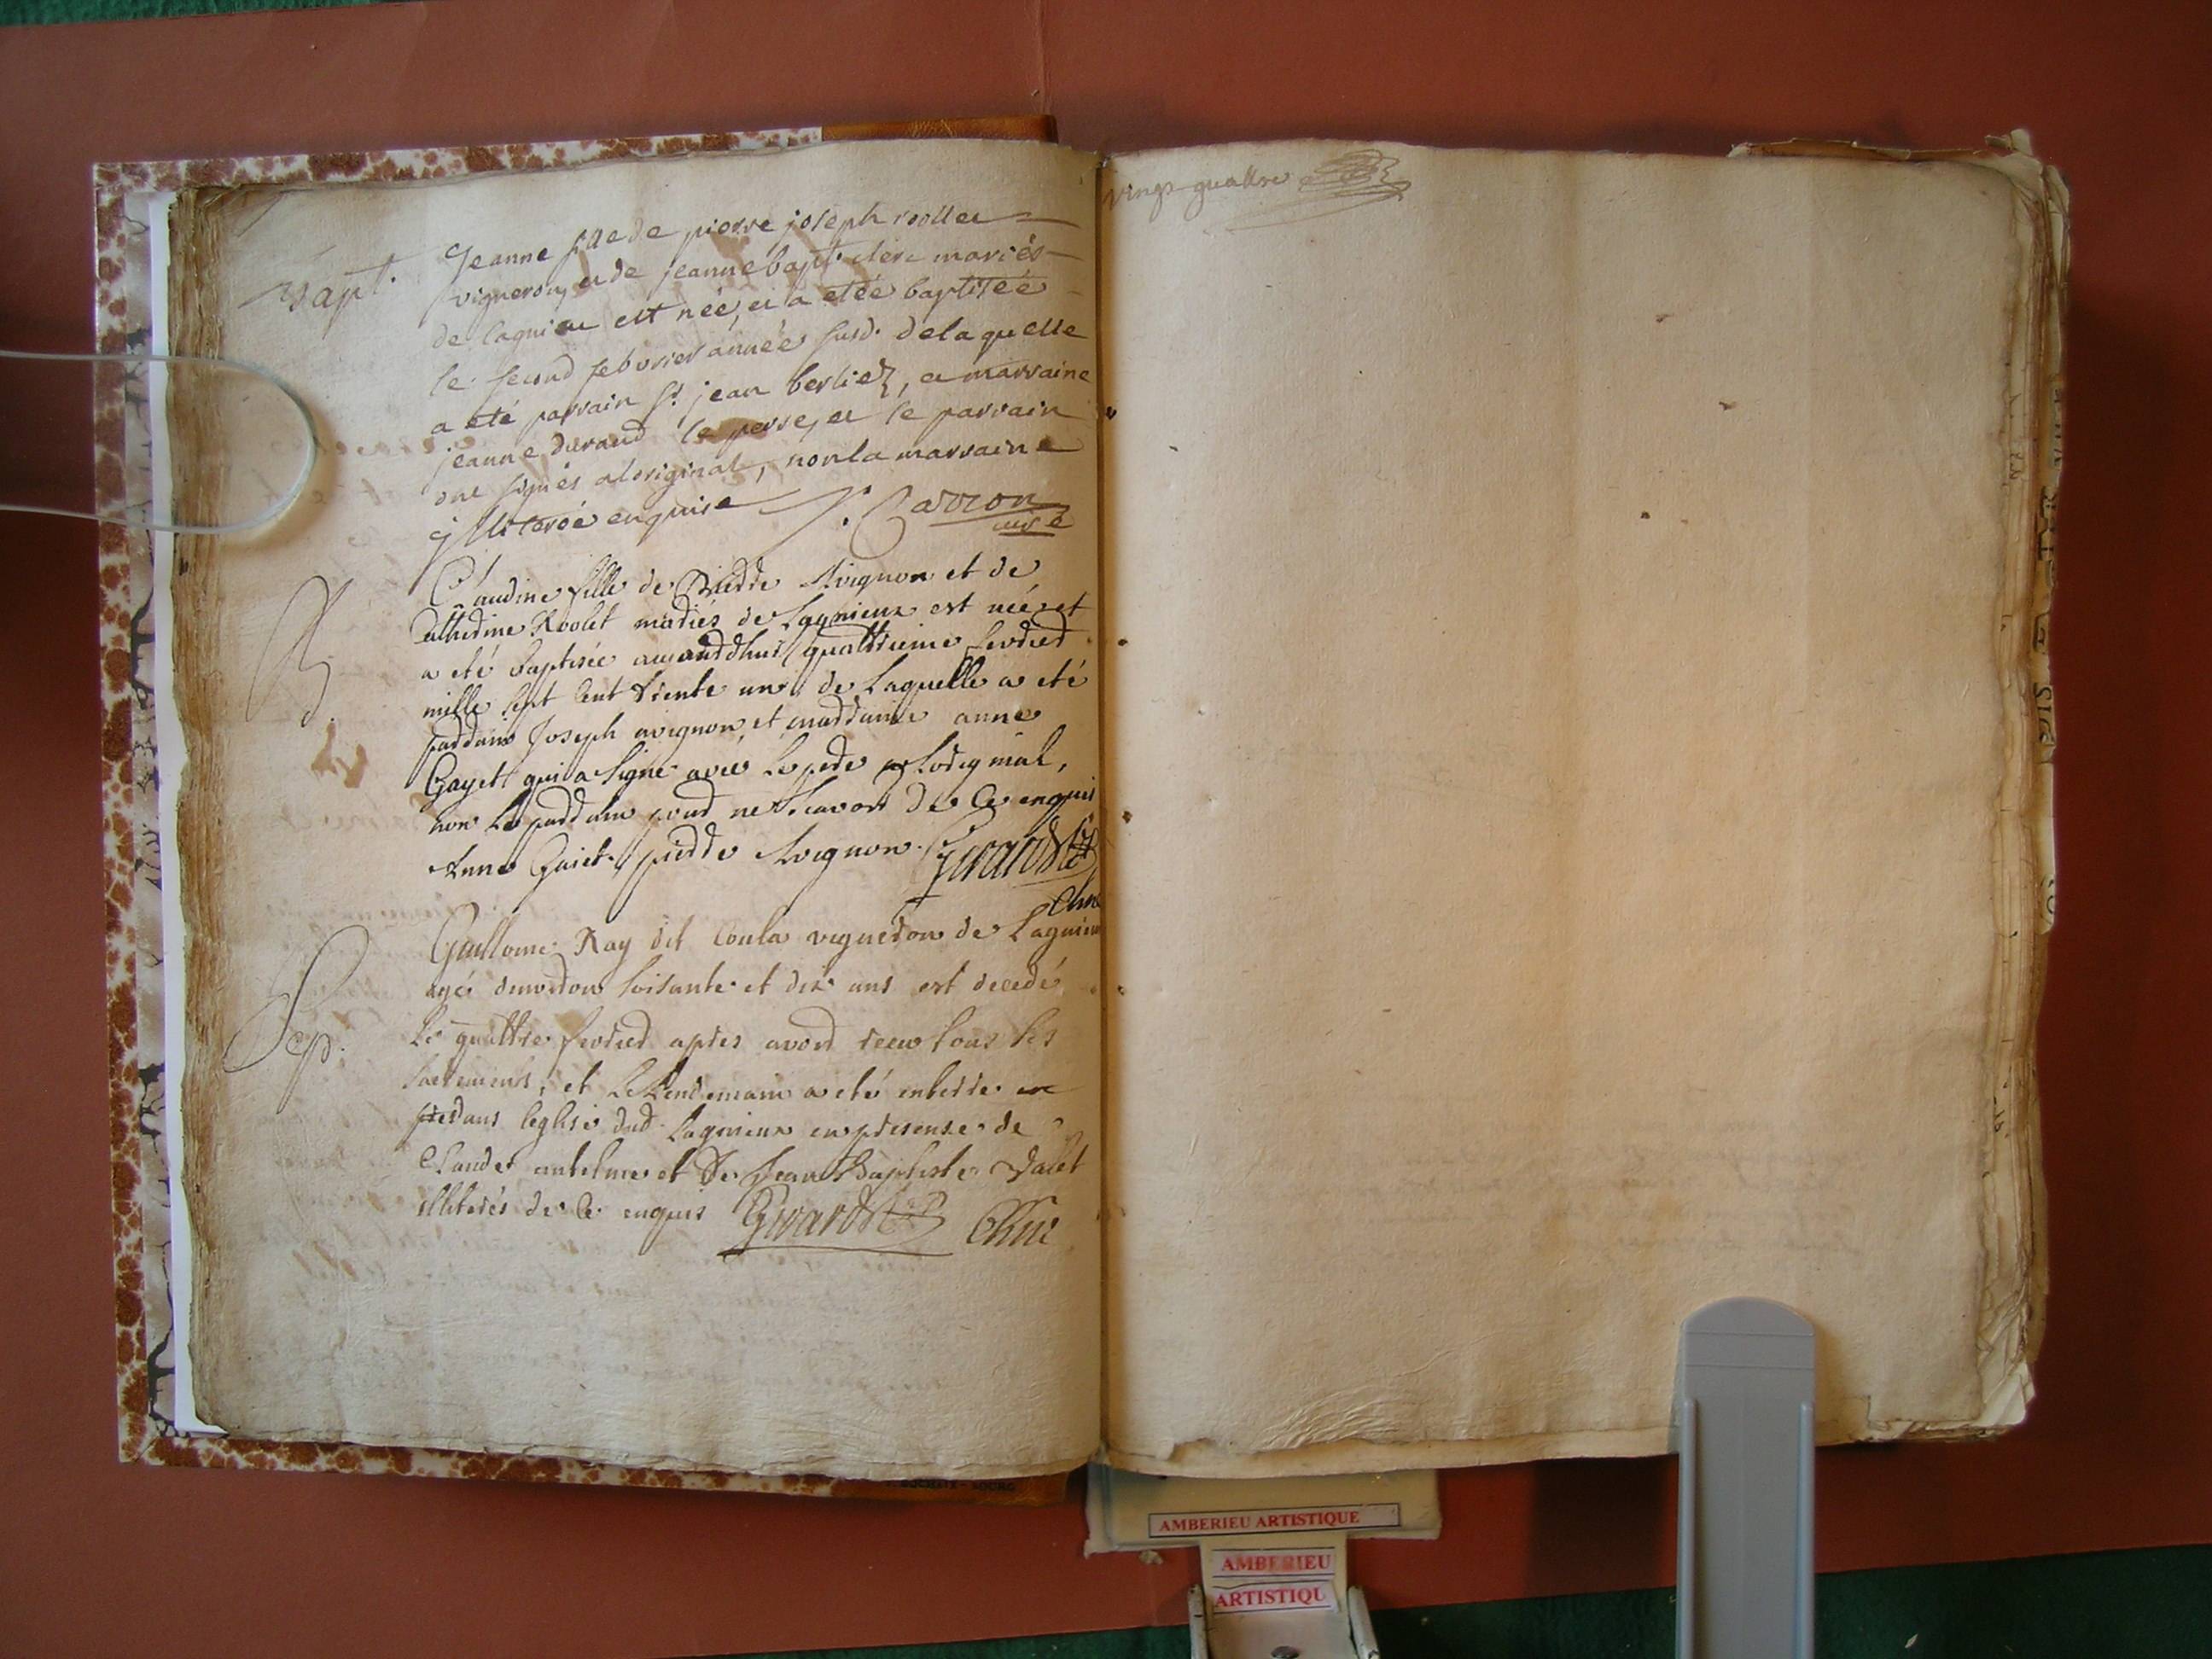 Bapt.
Jeanne fille de pierre joseph roollet
vigneron, et de jeanne bapt. clerc mariés
de lagnieu est née, et a etée baptisée
le second febvrier année susd. de laquelle
a eté parrain sr. jean berliez, et marraine
jeanne durand le perse, et le parrain
ont signés a loriginal, non la marraine
jlliterée enquise J. Carron
curé
B.
Claudine fille de Pierre Avignon et de
Catherine Roolet mariés de Lagnieux est née et
a eté baptisée aujourdhui quattrieme fevrier
mille sept cent trente un, de laquelle a eté
parrain Joseph avignon et marraine anne
Gayet qui a signé avec le pere a Loriginal,
non le parrain pour ne sçavoir de ce enquis
Anne Gaiet. pierre Avignon. Girard
Guillome Ray dit Conla vigneron de Lagnieu
Sep.
agé denviron soisante et dix ans est decedé
le quattre fevrier apres avoir receu tous les
sacremens, et le lendemain a eté enterré
dans leglise dud. Lagnieux en presense de
Claude antelme et de Jean Baptiste Valet
illiterés de ce enquis Girard
vingt quattre
AMBERIEU ARTISTIQUE
AMBERIEU
ARTISTIQU